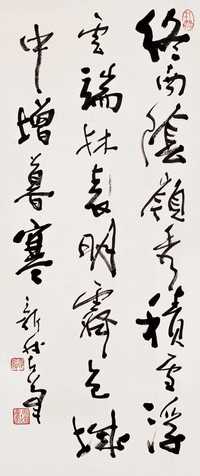 終南陰嶺秀積雪浮
雲端林表明霽色城
中增暮寒
新我左筆